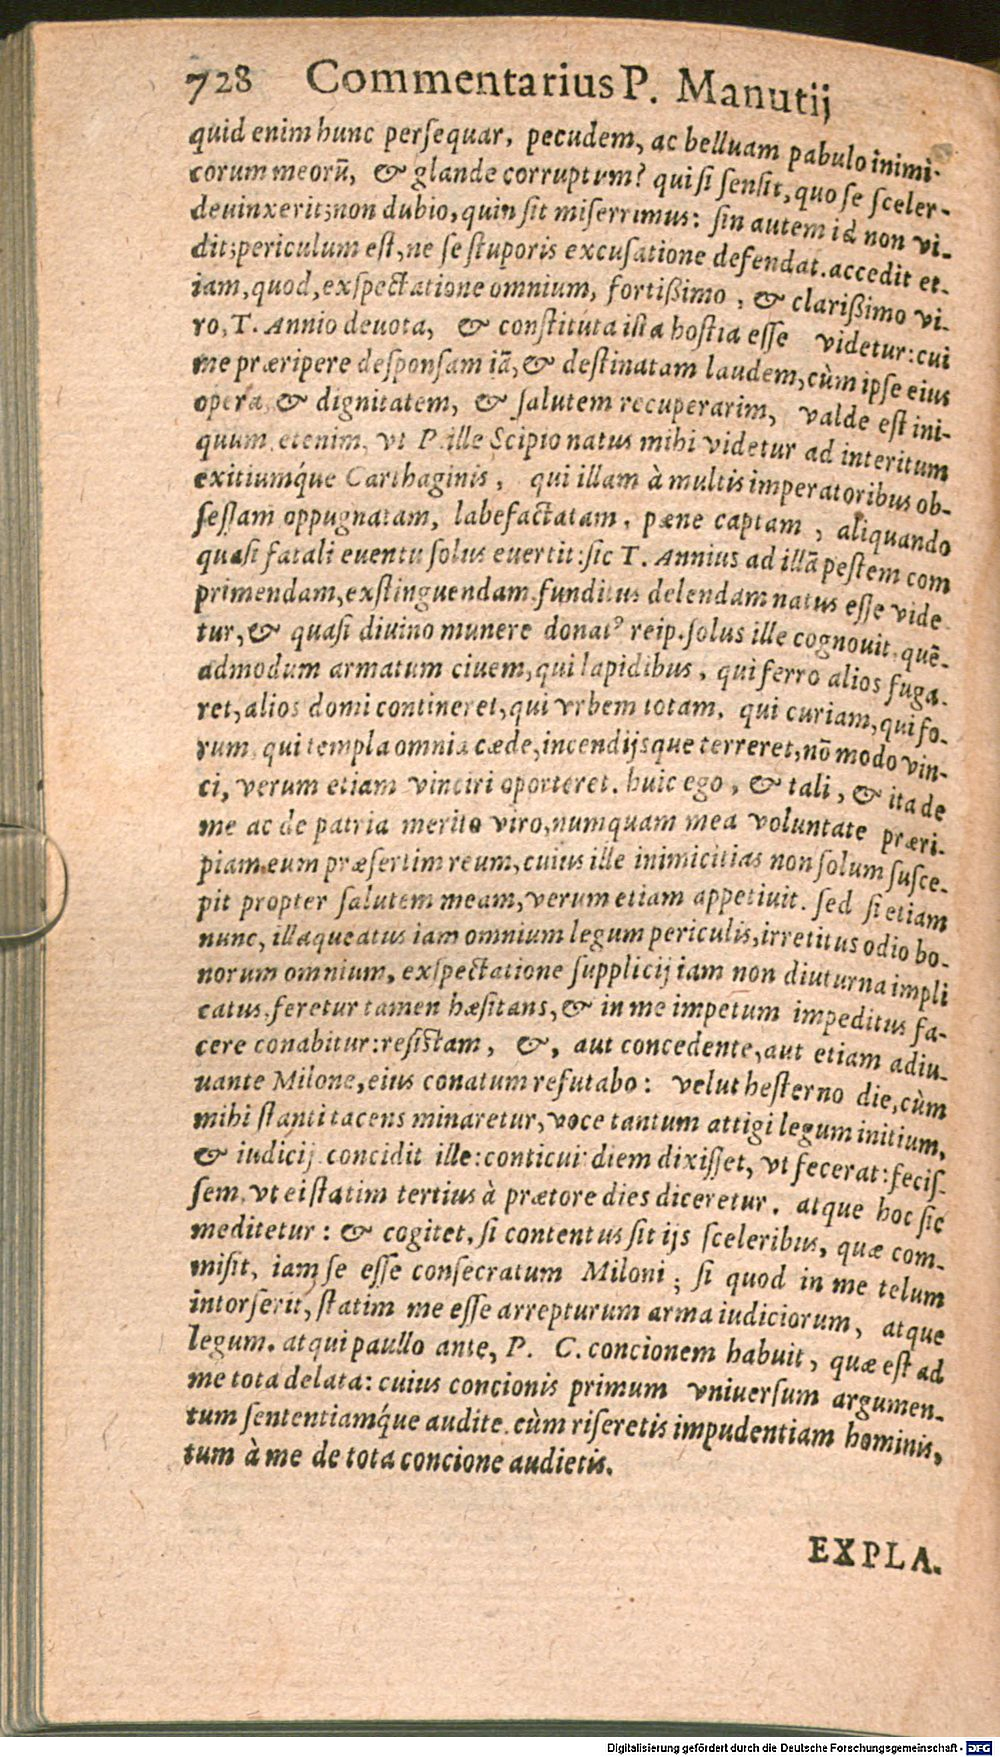 728 Commentarius P. Manutij
quid enim hunc perſequar, pecudem, ac belluam pabulo inimi-
corum meorũ, & glande corruptum? qui ſi ſenſit, quo ſe ſceler-
deuinxerit; non dubio, quin ſit miſerrimus: ſin autem id non vi-
dit; periculum eſt, ne ſe ſtuporis excuſatione defendat. accedit et-
iam, quod, exſpectatione omnium, fortißimo, & clarißimo vi-
ro, T. Annio deuota, & conſtituta iſta hoſtia eſſe videtur: cui
me præripere deſponſam iã, & deſtinatam laudem, cùm ipſe eius
opera, & dignitatem, & ſalutem recuperarim, valde eſt ini-
quum. etenim, vt P. ille Scipio natus mihi videtur ad interitum
exitiumq́ue Carthaginis, qui illam à multis imperatoribus ob-
ſeſſam oppugnatam, labefactatam, pæne captam, aliquando
quaſi fatali euentu ſolus euertit: ſic T. Annius ad illã peſtem com
primendam, exſtinguendam. funditus delendam natus eſſe vide
tur, & quaſi diuino munere donatꝰ reip. ſolus ille cognouit, quẽ-
admodum armatum ciuem, qui lapidibus, qui ferro alios fuga-
ret, alios domi contineret, qui vrbem totam, qui curiam, qui fo-
rum, qui templa omnia cæde, incendijsque terreret, nõ modo vin-
ci, verum etiam vinciri oporteret. huic ego, & tali, & ita de
me ac de patria merito viro, numquam mea voluntate præri-
piam eum præſertim reum, cuius ille inimicitias non ſolum ſuſce-
pit propter ſalutem meam, verum etiam appetiuit. ſed ſi etiam
nunc, illaqueatus iam omnium legum periculis, irretitus odio bo-
norum omnium, exſpectatione ſupplicij iam non diuturna impli
catus, feretur tamen hæſitans, & in me impetum impeditus fa-
cere conabitur: reſiſtam, &, aut concedente, aut etiam adiu-
uante Milone, eius conatum refutabo: velut heſterno die, cùm
mihi ſtanti tacens minaretur, voce tantum attigi legum initium,
& iudicij. concidit ille: conticui: diem dixiſſet, vt fecerat: feciſ-
ſem, vt ei ſtatim tertius à prætore dies diceretur. atque hoc ſic
meditetur: & cogitet, ſi contentus ſit ijs ſceleribus, quæ com-
miſit, iam ſe eſſe conſecratum Miloni; ſi quod in me telum
intorſerit, ſtatim me eſſe arrepturum arma iudiciorum, atque
legum. atqui paullo ante, P. C. concionem habuit, quæ eſt ad
me tota delata: cuius concionis primum vniuerſum argumen-
tum ſententiamq́ue audite. cùm riſeretis impudentiam hominis,
tum à me de tota concione audietis.
EXPLA.
Digitalisierung gefördert durch die Deutsche Forschungsgemeinschaft - DFG